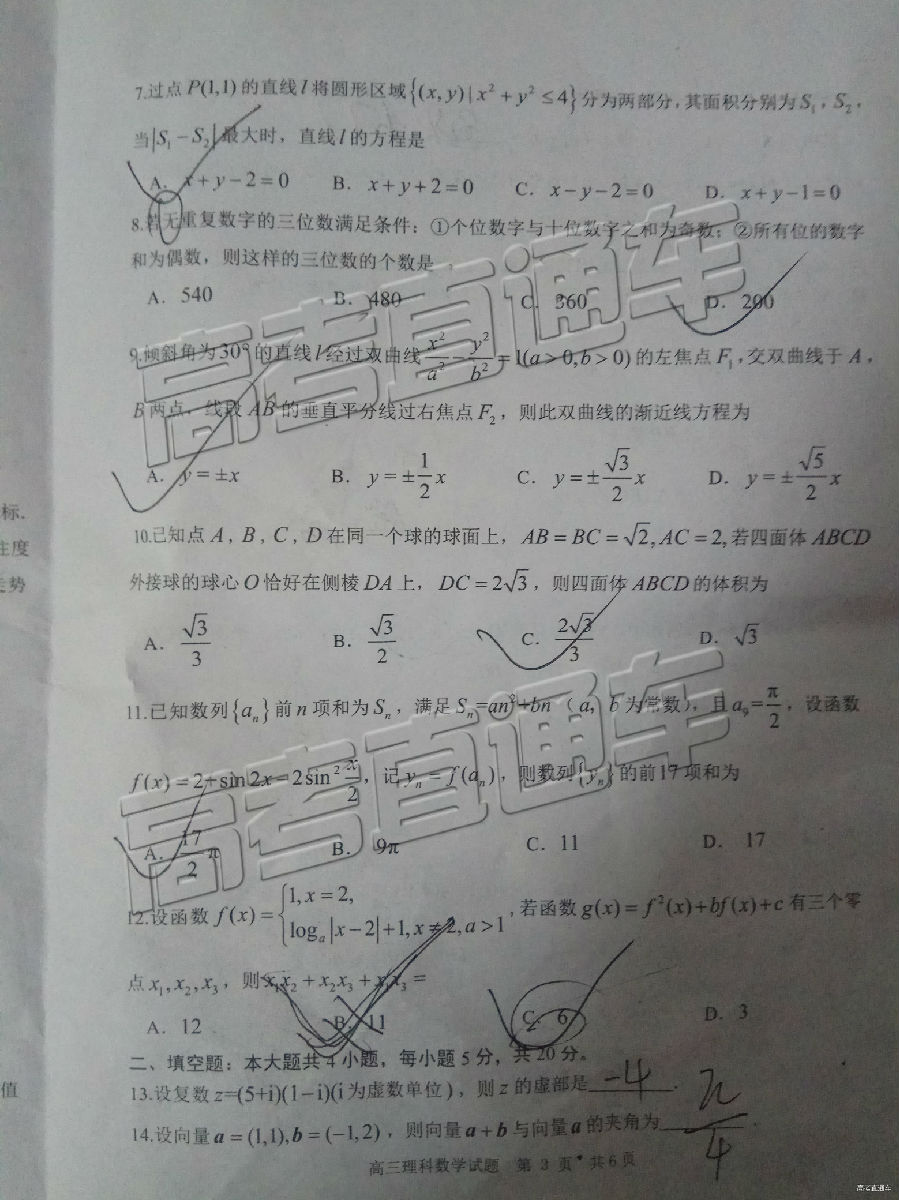 7.过点P(1,1)的直线l将圆形区域{(x,y)|x²+y²≤4}分为两部分,其面积分别为S₁,S₂,
当|S₁-S₂|最大时,直线l的方程是
A. x+y-2=0 B. x+y+2=0 C. x-y-2=0 D. x+y-1=0
8.若无重复数字的三位数满足条件:①个位数字与十位数字之和为奇数;②所有位的数字
和为偶数,则这样的三位数的个数是
A. 540 B. 480 C. 360 D. 200
9.倾斜角为30°的直线l经过双曲线x²/a²-y²/b²=1(a>0,b>0)的左焦点F₁,交双曲线于A,
B两点,线段AB的垂直平分线过右焦点F₂,则此双曲线的渐近线方程为
A. y=±x B. y=±1/2x C. y=±√3/2x D. y=±√5/2x
标.
主度
走势
10.已知点A,B,C,D在同一个球的球面上,AB=BC=√2,AC=2,若四面体ABCD
外接球的球心O恰好在侧棱DA上,DC=2√3,则四面体ABCD的体积为
A. √3/3 B. √3/2 C. 2√3/3 D. √3
11.已知数列{aₙ}前n项和为Sₙ,满足Sₙ=an²+bn(a,b为常数),且a₉=π/2,设函数
f(x)=2+sin2x-2sin²x/2,记yₙ=f(aₙ),则数列{yₙ}的前17项和为
A. 17/2π B. 9π C. 11 D. 17
12.设函数f(x)={1,x=2,
logₐ|x-2|+1,x≠2,a>1,若函数g(x)=f²(x)+bf(x)+c有三个零
点x₁,x₂,x₃,则x₁x₂+x₂x₃+x₁x₃=
A. 12 B. 11 C. 6 D. 3
二、填空题:本大题共4小题,每小题5分,共20分。
值
13.设复数z=(5+i)(1-i)(i为虚数单位),则z的虚部是 -4 .
14.设向量a=(1,1),b=(-1,2),则向量a+b与向量a的夹角为 π/4 .
高三理科数学试题 第3页 共6页
高考直通车
高考直通车
高考直通车